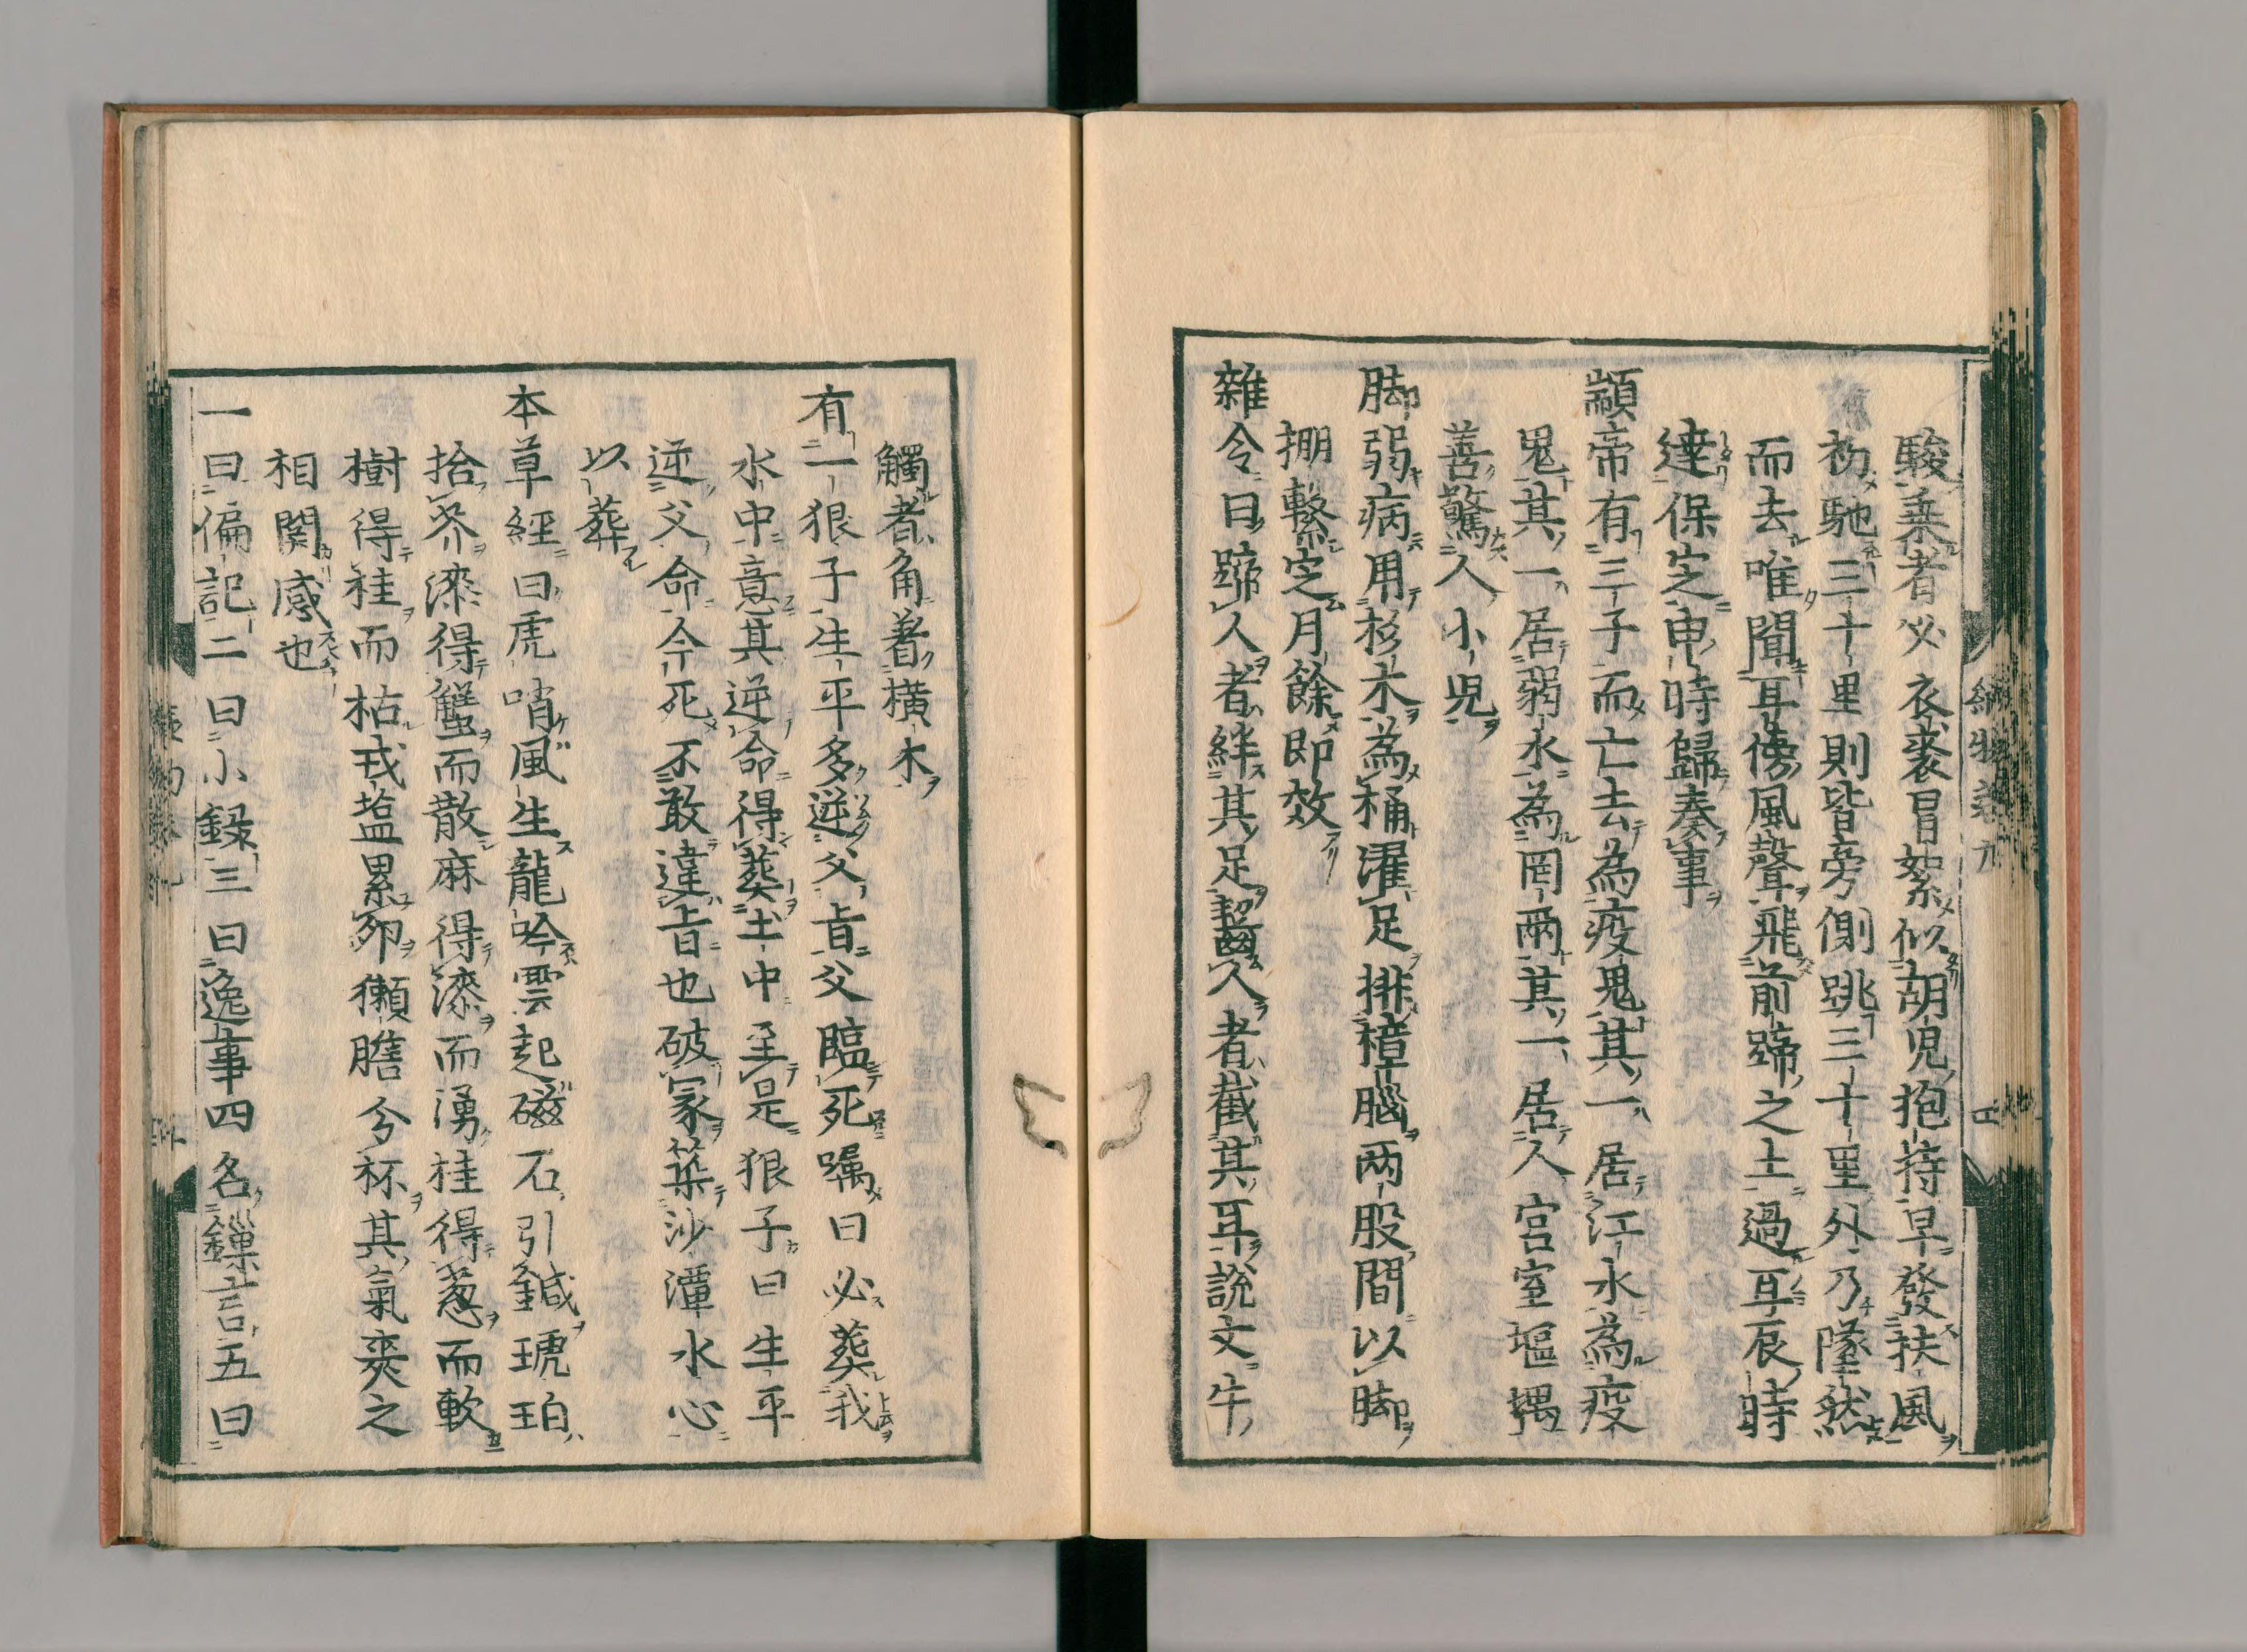 駿乗者必衣裘冒絮似胡児抱持早發扶風
初馳三十里則皆旁側跳三十里外乃墜然
而去唯聞耳傍風聲飛前蹄之土過耳辰時
達保定申時歸奏事
顓帝有三子而亡去為疫鬼其一居江水為疫
鬼其一居弱水為罔兩其一居人宮室塸㨿
善驚人小児
脚弱病用杉木為桶濯足排樟腦兩股間以脚
掤繫定月餘即效
雜令曰蹄人者絆其足齧人者截其耳說文牛
觸者角著横木
有一狠子生平多逆父旨父臨死嘱曰必葬我
水中意其逆命得葬土中至是狠子曰生平
逆父命今死不敢違旨也破冢築沙潭水心
以葬
本草經曰虎哨風生龍吟雲起磁石引鍼琥珀
拾芥漆得蟹而散麻得漆而湧桂得葱而軟
樹得桂而枯戎塩累卵獺膽分杯其氣爽之
相関感也
一曰偏記二曰小録三曰逸事四名鏁言五曰